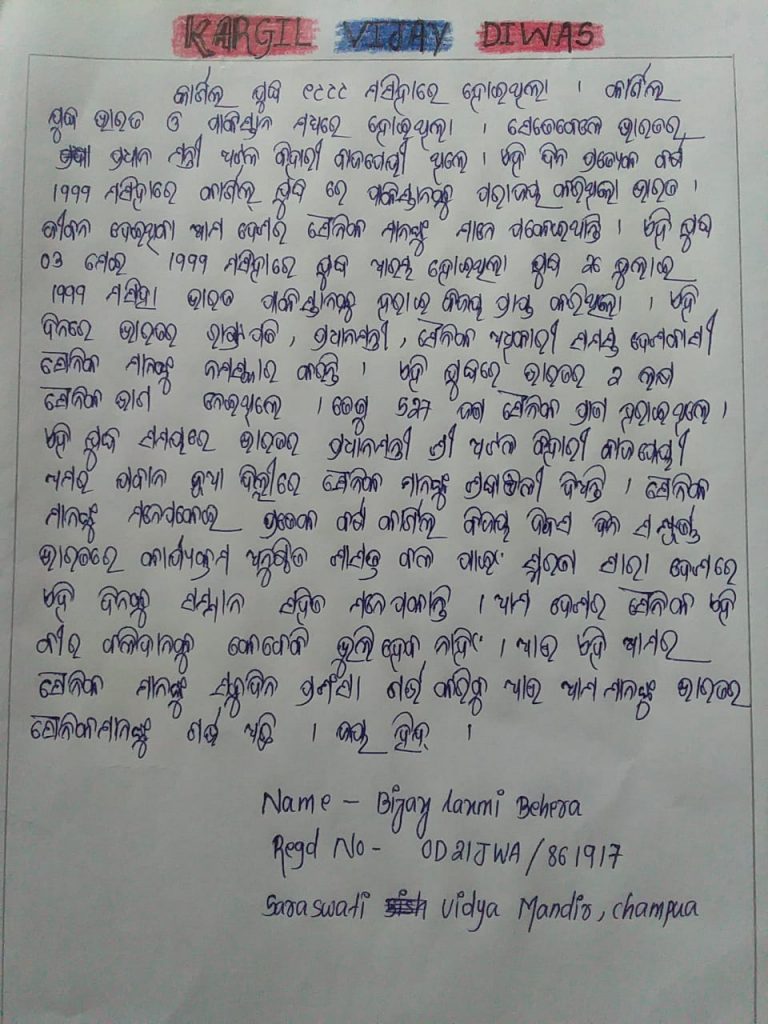 KARGIL VIJAY DIWAS
କାର୍ଗିଲ ଯୁଦ୍ଧ ୧୯୯୯ ମସିହାରେ ହୋଇଥିଲା । କାର୍ଗିଲ
ଯୁଦ୍ଧ ଭାରତ ଓ ପାକିସ୍ତାନ ମଧ୍ୟରେ ହୋଇଥିଲା । ସେତେବେଳେ ଭାରତର
ପ୍ରଧାନ ମନ୍ତ୍ରୀ ଅଟଳ ବିହାରୀ ବାଜପେୟୀ ଥିଲେ । ଏହି ଦିନ ପ୍ରତ୍ୟେକ ବର୍ଷ
1999 ମସିହାରେ କାର୍ଗିଲ୍ ଯୁଦ୍ଧ ରେ ପାକିସ୍ତାନକୁ ପରାଜୟ କରିଥିଲା ଭାରତ ।
ଜୀବନ ଦେଇଥିବା ଆମ ଦେଶର ସୈନିକ ମାନଙ୍କୁ ମନେ ପକେଇଥାନ୍ତି । ଏହି ଯୁଦ୍ଧ
03 ମେଇ 1999 ମସିହାରେ ଯୁଦ୍ଧ ଆରମ୍ଭ ହୋଇଥିଲା ଯୁଦ୍ଧ 26 ଜୁଲାଇ
1999 ମସିହା ଭାରତ ପାକିସ୍ତାନକୁ ହରାଇ ବିଜୟ ପ୍ରାପ୍ତ କରିଥିଲା । ଏହି
ଦିନରେ ଭାରତର ରାଷ୍ଟ୍ରପତି , ପ୍ରଧାନମନ୍ତ୍ରୀ , ସୈନିକ ଅଧିକାରୀ ସମସ୍ତ ଦେଶବାସୀ
ସୈନିକ ମାନଙ୍କୁ ନମସ୍କାର କରନ୍ତି । ଏହି ଯୁଦ୍ଧରେ ଭାରତର 2 ଲକ୍ଷ
ସୈନିକ ଭାଗ ନେଇଥିଲେ । ତେଣୁ 527 ଜଣ ସୈନିକ ପ୍ରାଣ ହରାଇଥିଲେ ।
ଏହି ଯୁଦ୍ଧ ସମୟରେ ଭାରତର ପ୍ରଧାନମନ୍ତ୍ରୀ ଶ୍ରୀ ଅଟଳ ବିହାରୀ ବାଜପେୟୀ
ଅମର ଜବାନ ନୂଆ ଦିଲ୍ଲୀରେ ସୈନିକ ମାନଙ୍କୁ ଶ୍ରଦ୍ଧାଞ୍ଜଳୀ ଦିଅନ୍ତି । ସୈନିକ
ମାନଙ୍କୁ ମନେପକେଇ ପ୍ରତେକ ବର୍ଷ କାର୍ଗିଲ ବିଜୟ ଦିବସ ଦିନ ସମ୍ପୂର୍ଣ୍ଣ
ଭାରତରେ କାର୍ଯ୍ୟକ୍ରମ ଅନୁଷ୍ଠିତ ପାଇଁ ସ୍ମରଣ ସାରା ଦେଶରେ
ଏହି ଦିନକୁ ସମ୍ମାନ ସହିତ ମନେ ପକାନ୍ତି । ଆମ ଦେଶର ସୈନିକ ଏହି
ବୀର ବଳିଦାନକୁ କେବେବି ଭୁଲି ହେବ ନାହିଁ । ଆଉ ଏହି ଆମର
ସୈନିକ ମାନଙ୍କୁ ସବୁଦିନ ପ୍ରଶଂସା ଗର୍ବ କରିବୁ ଆଉ ଆମ ମାନଙ୍କୁ ଭାରତର
ସୈନିକମାନଙ୍କୁ ଗର୍ବ ଅଛି । ଜୟ ହିନ୍ଦ୍ ।
Name - Bijay laxmi Behera
Regd No - OD21JWA/861917
Saraswati Vidya Mandir, champua